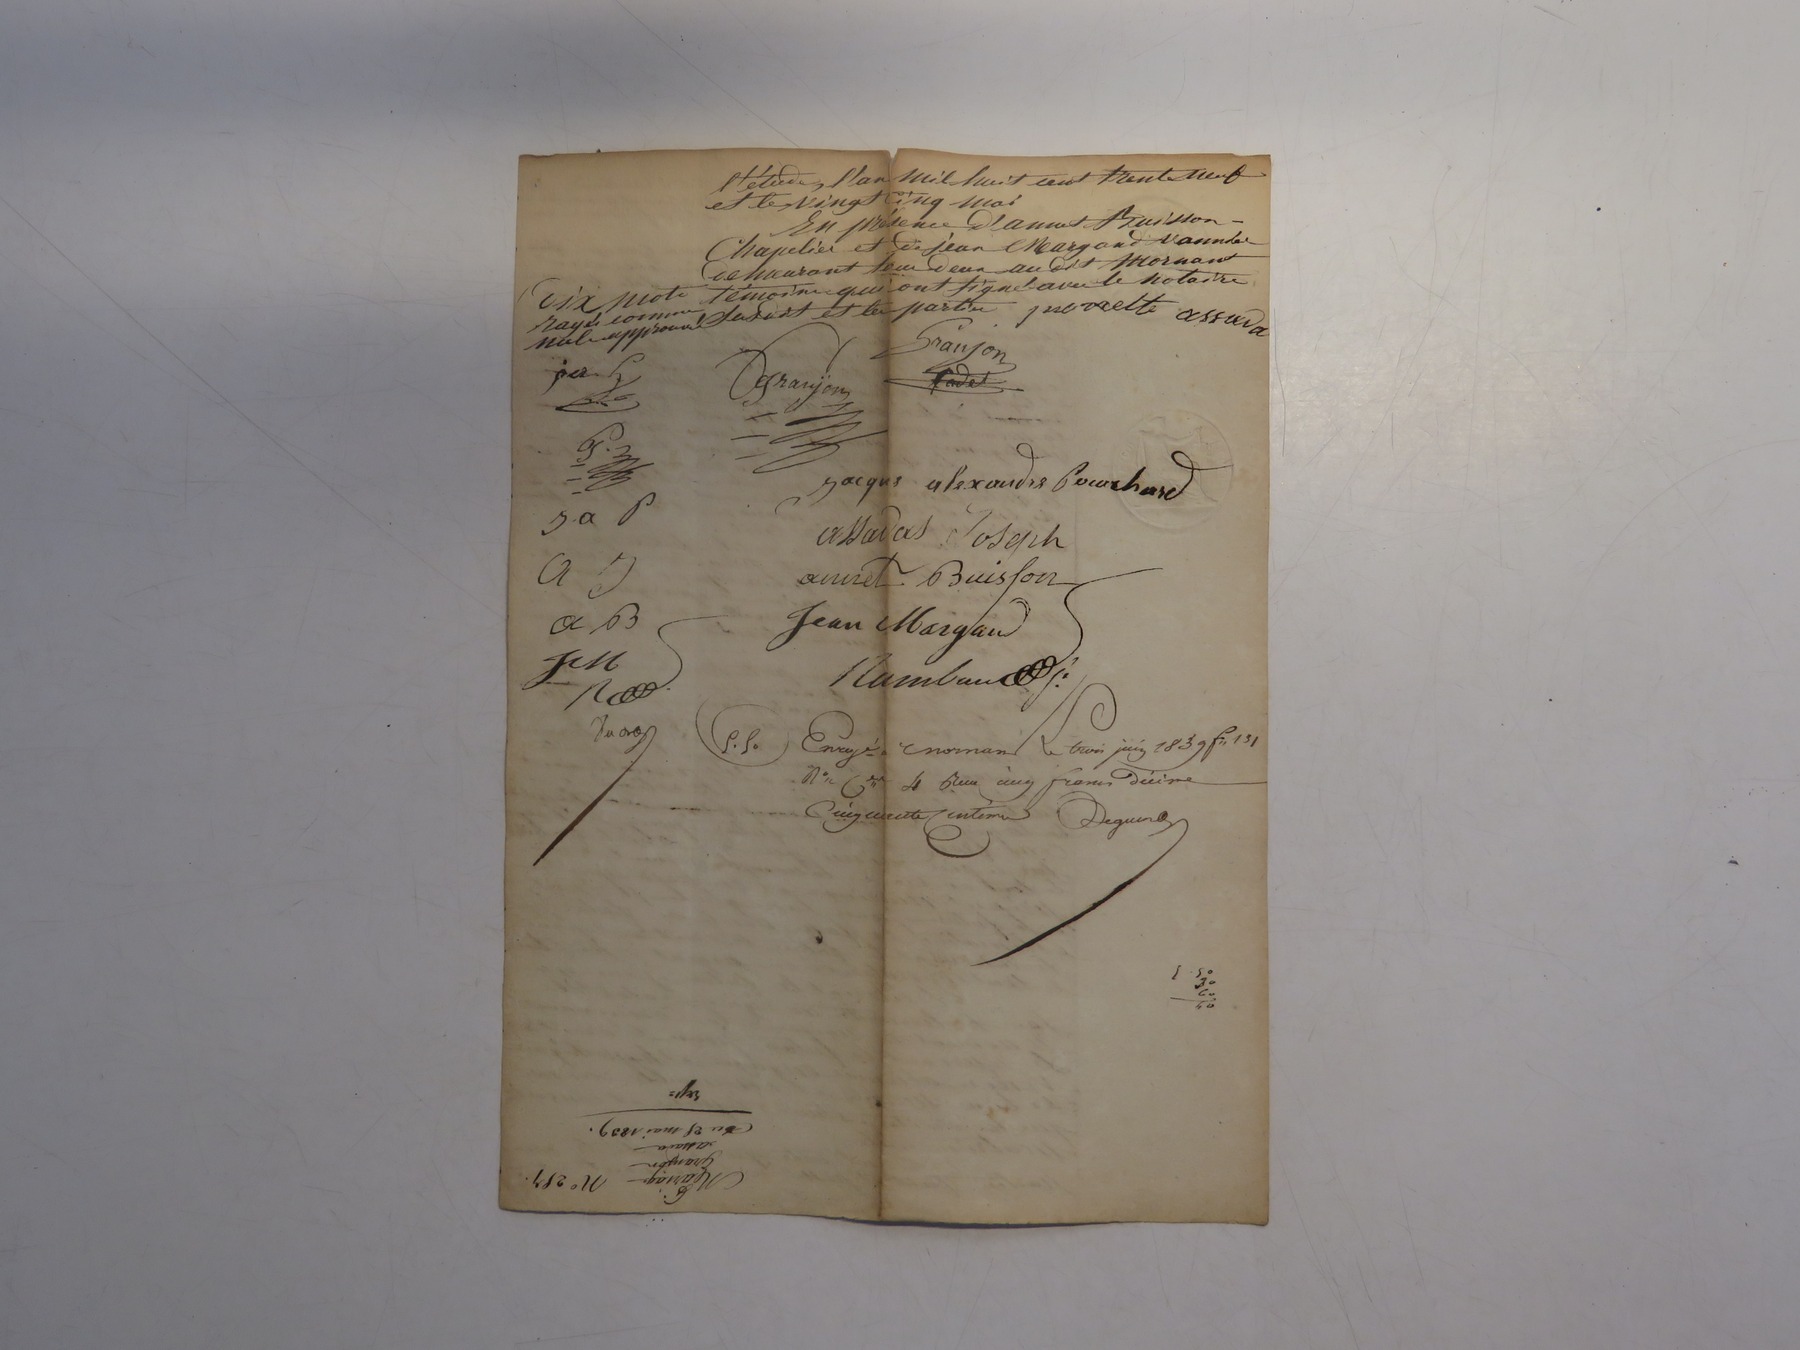 l'étude, l'an mil huit cent trente neuf
et le vingt cinq mai
En présence d'annet Buisson
Chapelier et de jean Margand vannier
demeurant tous deux au dit Mornant
témoins qui ont signé avec le notaire
susdit et les parties
Dix mots
rayés comme
nuls approuvés
assada
Granjon
Cadet
granjon
G.
J. a P
jacques alexandre Pouchard
assadas Joseph
A J
annet Buisson
a B
Jean Margand
JM
Rambaud
Enregé a mornant le trois juin 1839 fo 131
Ro Ce 4 Reçu cinq francs décime
Cinquante centimes
5 50
30
60
40
Mariage
granjon
assada
Du 25 mai 1839.
No 257.